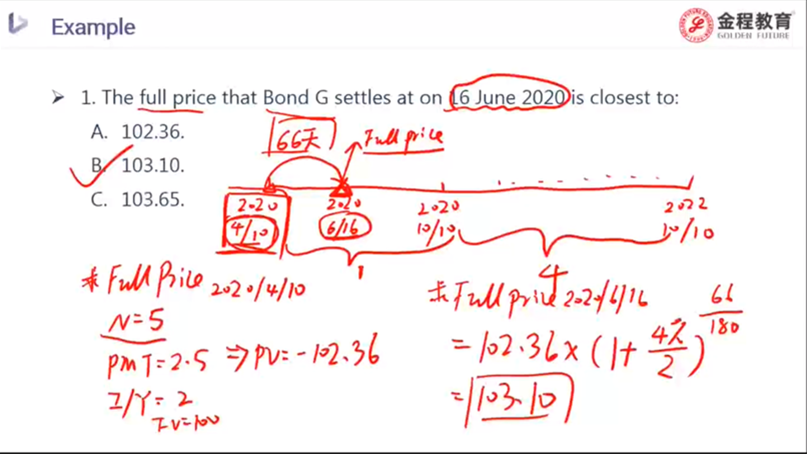 Example
金程教育
GOLDEN FUTURE
1. The full price that Bond G settles at on 16 June 2020 is closest to:
A. 102.36.
B. 103.10.
C. 103.65.
66天
Full price
2020
4/10
2020
6/16
2020
10/10
2022
10/10
1
4
*Full Price 2020/4/10
N=5
PMT=2.5 ⇒PV=-102.36
I/Y=2
FV=100
*Full price 2020/6/16
=102.36×(1+4%/2)^66/180
=103.10